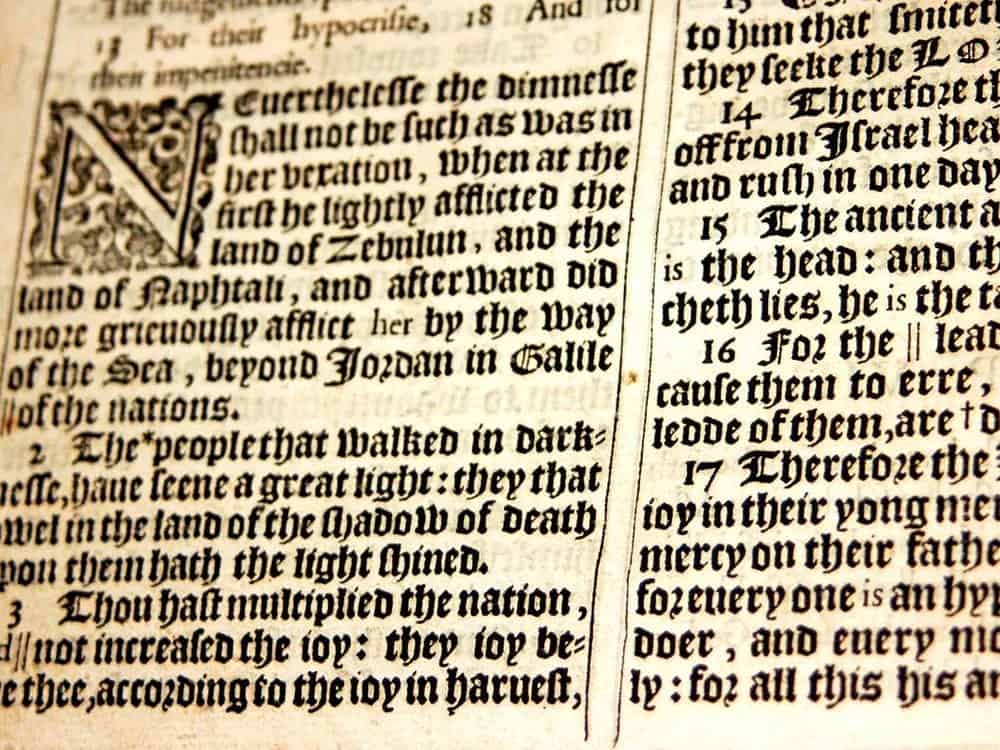 13 For their hypocriſie, 18 And for
their impenitencie.
NEuertheleſſe the dimneſſe
ſhall not be ſuch as was in
her vexation, when at the
firſt he lightly afflicted the
land of Zebulun, and the
land of Naphtali, and afterward did
more grieuouſly afflict her by the way
of the Sea, beyond Jordan in Galile
||of the nations.
2 The*people that walked in dark-
neſſe, haue ſeene a great light: they that
dwel in the land of the ſhadow of death
vpon them hath the light ſhined.
3 Thou haſt multiplied the nation,
||not increaſed the ioy: they ioy be-
thee, according to the ioy in harueſt,
to him that
they ſeeke the
14 Therefore
off from Iſrael
and ruſh in one day
15 The ancient
is the head: and
cheth lies, he is the
16 For the ||
cauſe them to erre,
ledde of them, are †
17 Therefore the
ioy in their yong
mercy on their
for euery one is an
doer, and euery
ly: for all this his